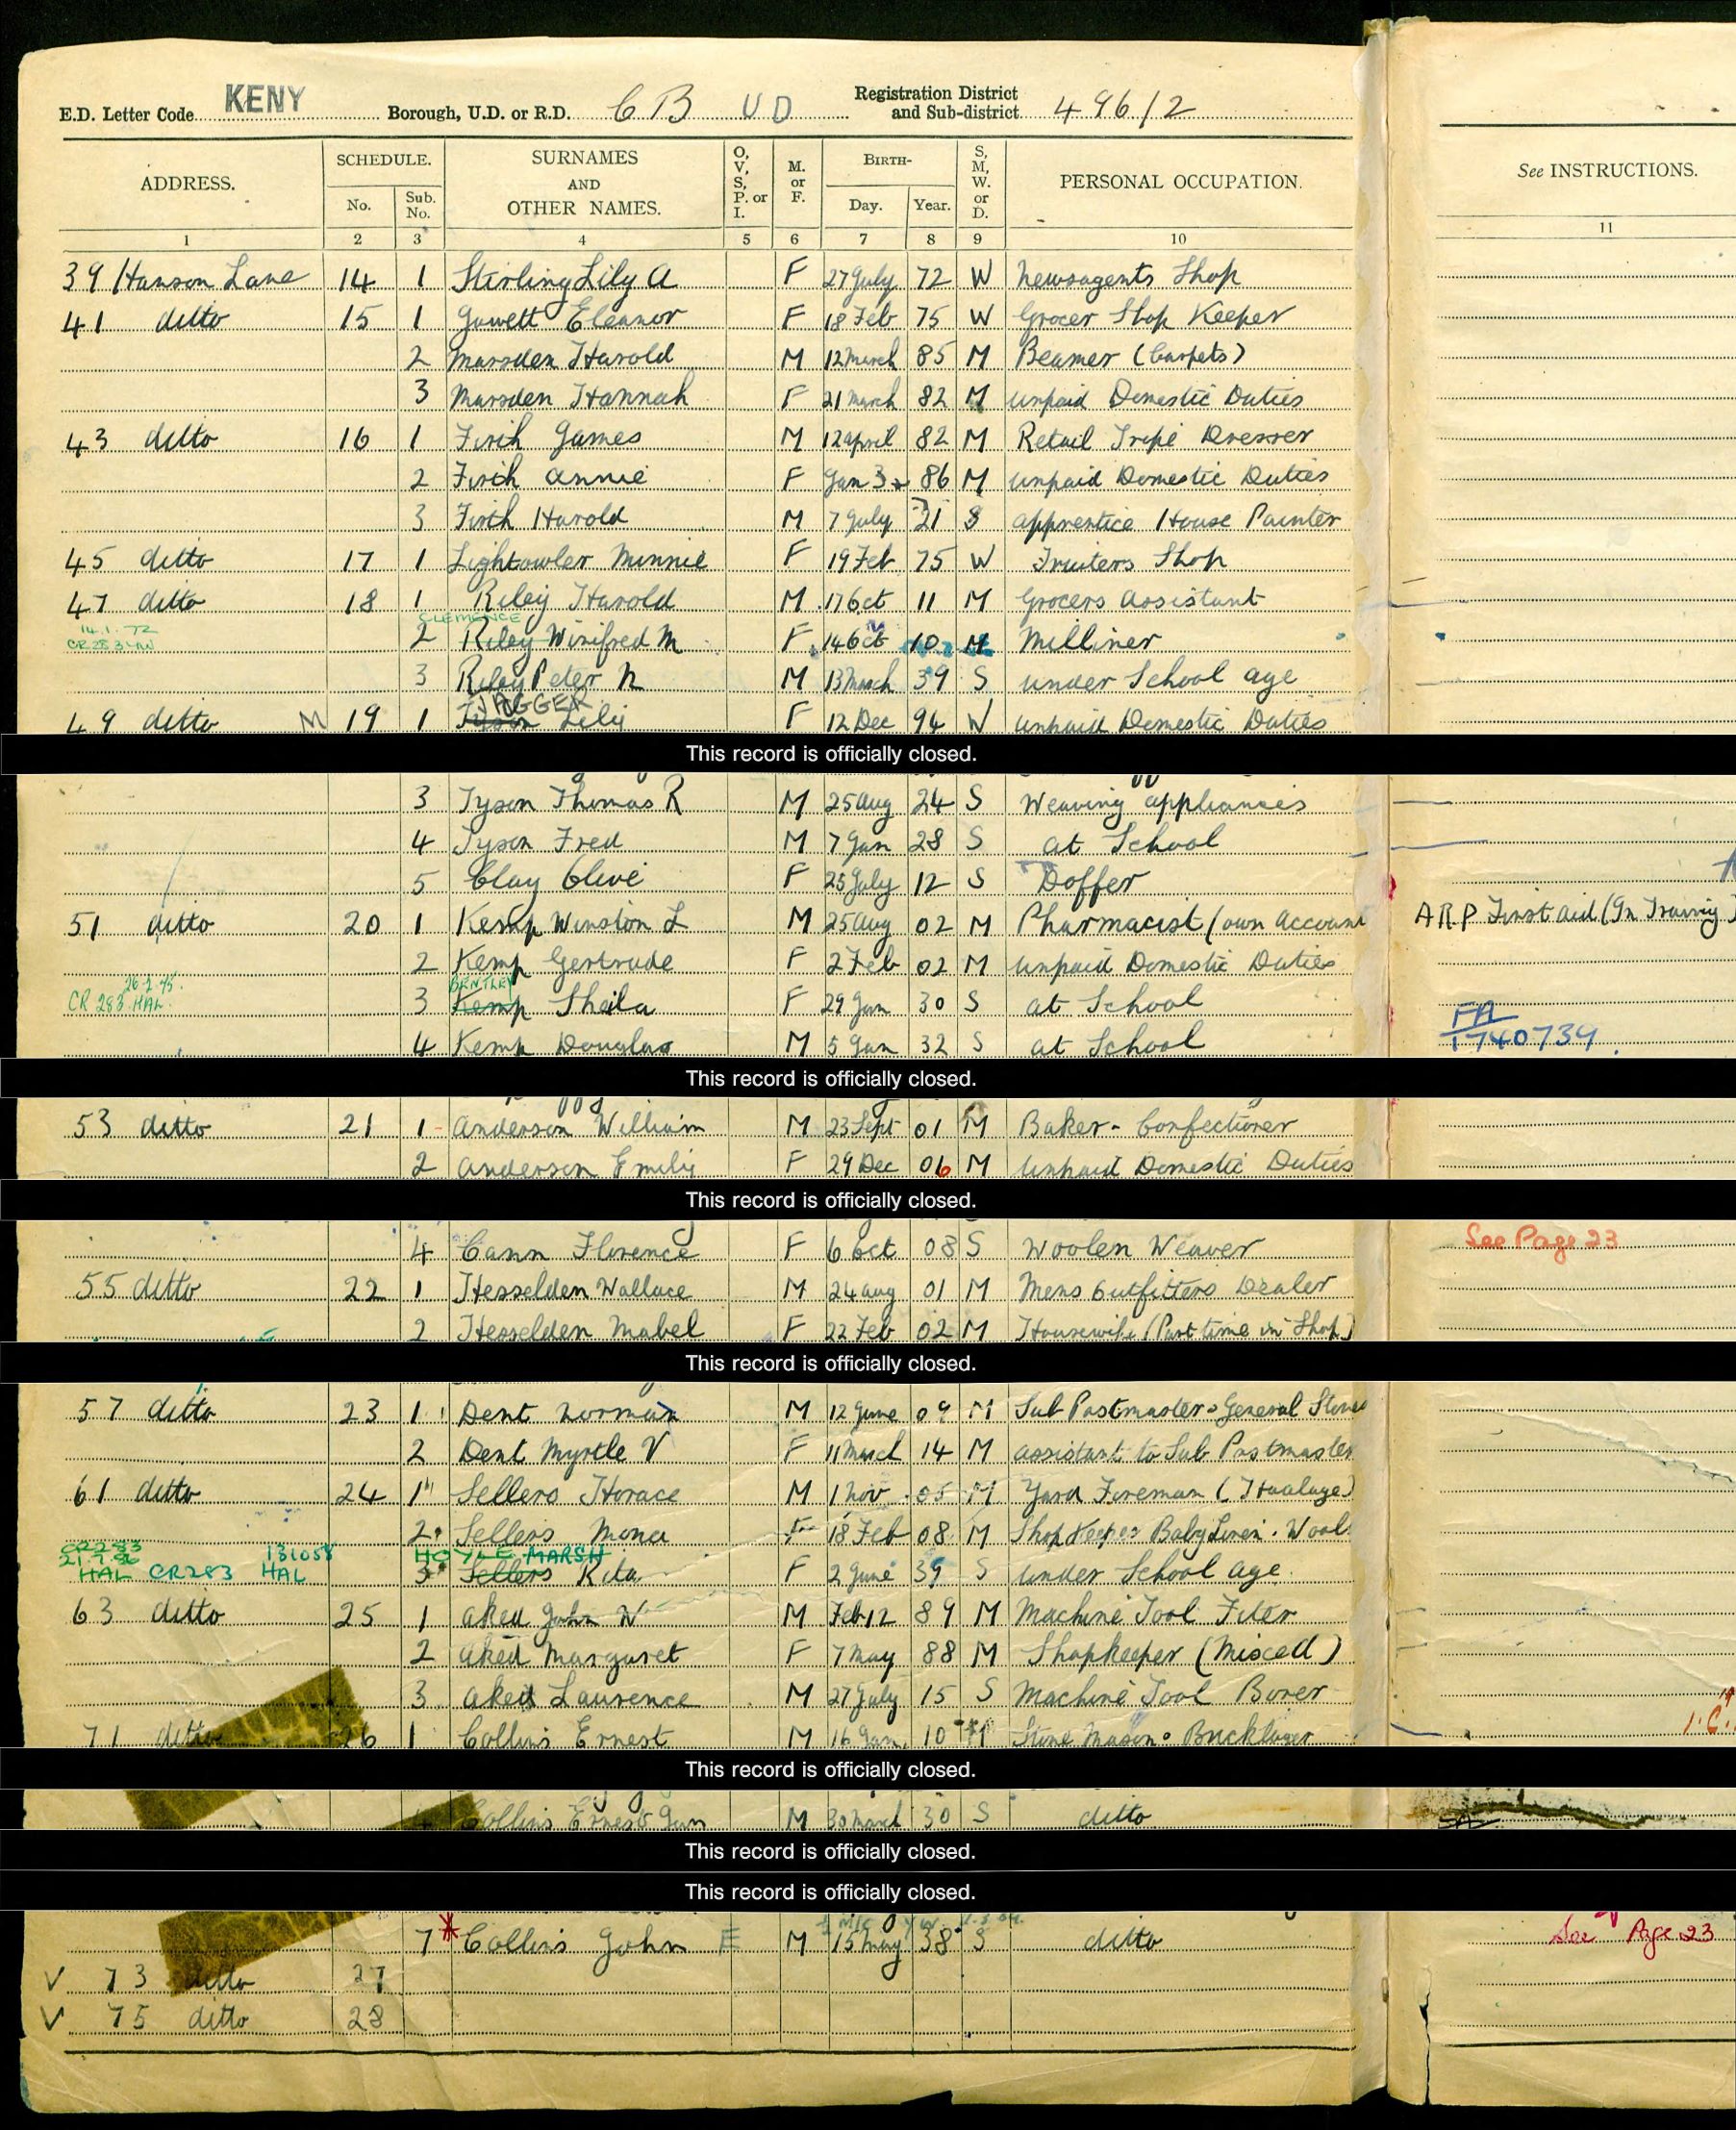 E.D. Letter Code KENY Borough, U.D. or R.D. C B U D Registration District and Sub-district 496/2
ADDRESS. SCHEDULE. No. Sub. No. SURNAMES AND OTHER NAMES. O, V, S, P. or I. M. or F. BIRTH- Day. Year. S, M, W. or D. PERSONAL OCCUPATION. See INSTRUCTIONS.
1 2 3 4 5 6 7 8 9 10 11
39 Hanson Lane 14 1 Stirling Lily A F 27 July 72 W Newsagents Shop
41 ditto 15 1 Jowett Eleanor F 18 Feb 75 W Grocer Shop Keeper
2 Marsden Harold M 12 March 85 M Beamer (Carpets)
3 Marsden Hannah F 21 March 82 M unpaid Domestic Duties
43 ditto 16 1 Firth James M 12 april 82 M Retail Tripe Dresser
2 Firth Annie F Jan 3 86 M unpaid Domestic Duties
3 Firth Harold M 7 July 21 S apprentice House Painter
45 ditto 17 1 Lightowler Minnie F 19 Feb 75 W Fruiters Shop
47 ditto 18 1 Riley Harold M 17 Oct 11 M Grocers Assistant
14.1.72 CLEMENCE
CR283 2 Riley Winifred M F 14 Oct 10 M Milliner
3 Riley Peter N M 13 March 39 S under School age
JAGGER
49 ditto M 19 1 Tyson Lily F 12 Dec 94 W unpaid Domestic Duties
This record is officially closed.
3 Tyson Thomas R M 25 Aug 24 S Weaving appliances
4 Tyson Fred M 7 Jan 28 S at School
5 Clay Clive F 25 July 12 S Doffer
51 ditto 20 1 Kemp Winston L M 25 Aug 02 M Pharmacist (own Account ARP First Aid (In Training)
2 Kemp Gertrude F 2 Feb 02 M unpaid Domestic Duties
26.2.45. BENTLEY
CR 283 HAL. 3 Kemp Sheila F 29 Jan 30 S at School FA
4 Kemp Douglas M 5 Jan 32 S at School 1740734
This record is officially closed.
53 ditto 21 1 Anderson William M 23 Sept 01 M Baker - Confectioner
2 Anderson Emily F 29 Dec 06 M Unpaid Domestic Duties
This record is officially closed.
4 Cann Florence F 6 Oct 08 S Woolen Weaver See Page 23
55 ditto 22 1 Hesselden Wallace M 24 aug 01 M Mens Outfitters Dealer
2 Hesselden Mabel F 22 Feb 02 M Housewife (Part time in Shop)
This record is officially closed.
57 ditto 23 1 Dent Norman M 12 June 09 M Sub Postmaster General Stores
2 Dent Myrtle V F 11 March 14 M assistant to Sub Postmaster
61 ditto 24 1 Sellers Horace M 1 Nov 05 M Yard Foreman (Haulage)
2 Sellers Mona F 18 Feb 08 M Shop Keeper Baby Linen . Wool
CR283 21.7.86 131058 HOYLE MARSH
HAL CR283 HAL 3 Sellers Rita F 2 June 39 S under School age
63 ditto 25 1 Aked John W M Feb 12 89 M Machine Tool Fitter
2 Aked Margaret F 7 May 88 M Shopkeeper (Misced)
3 Aked Laurence M 27 July 15 S Machine Tool Borer
71 ditto 26 1 Collins Ernest M 16 Jan 10 M Stone Mason Bricklayer
This record is officially closed.
4 Collins Ernest Jun M 30 March 30 S ditto
This record is officially closed.
This record is officially closed.
7 Collins John M 15 May 38 S ditto See Page 23
V 73 ditto 27
V 75 ditto 28